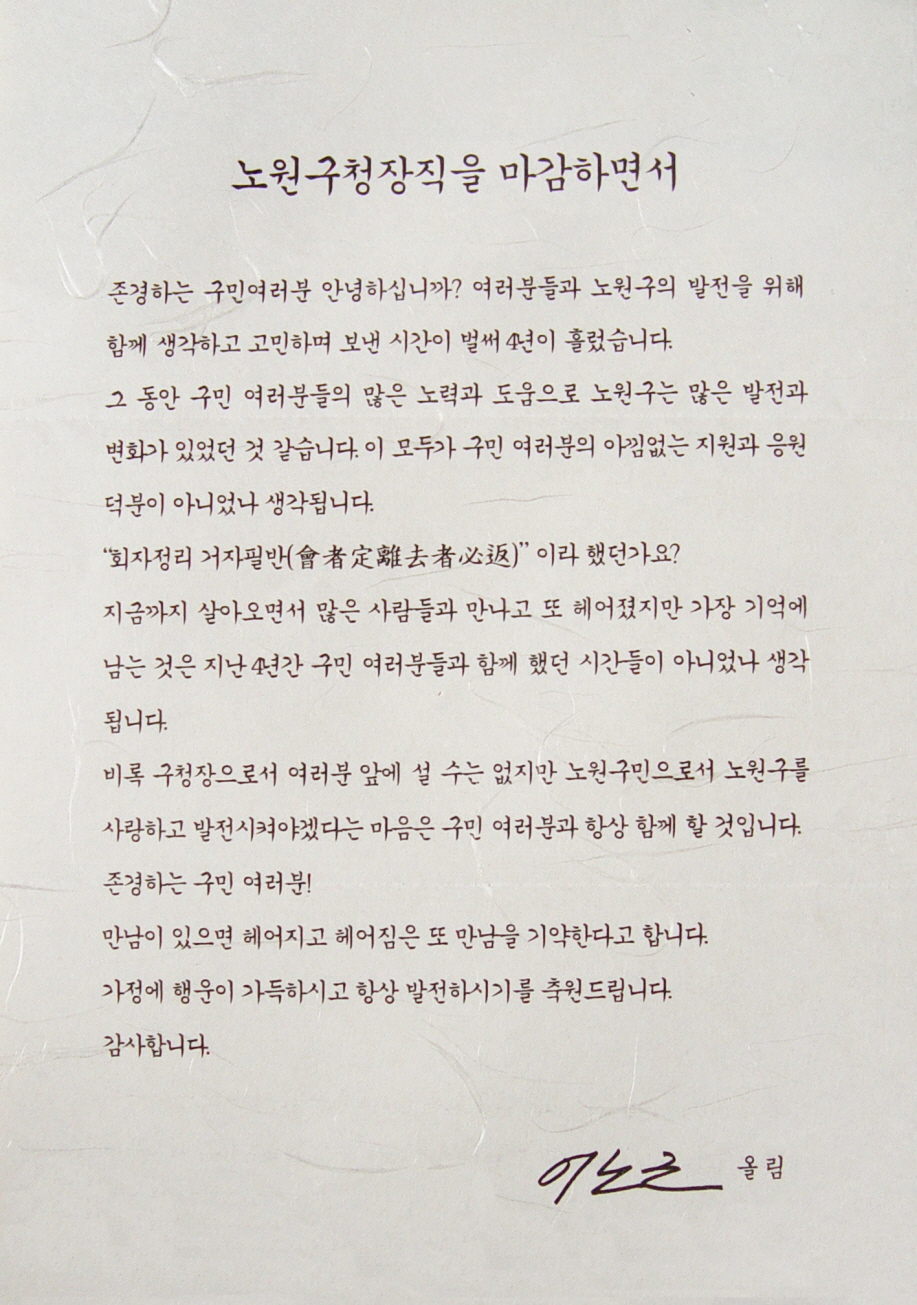 노원구청장직을 마감하면서
존경하는 구민여러분 안녕하십니까? 여러분들과 노원구의 발전을 위해
함께 생각하고 고민하며 보낸 시간이 벌써 4년이 흘렀습니다.
그 동안 구민 여러분들의 많은 노력과 도움으로 노원구는 많은 발전과
변화가 있었던 것 같습니다. 이 모두가 구민 여러분의 아낌없는 지원과 응원
덕분이 아니었나 생각됩니다.
“회자정리 거자필반(會者定離去者必返)” 이라 했던가요?
지금까지 살아오면서 많은 사람들과 만나고 또 헤어졌지만 가장 기억에
남는 것은 지난 4년간 구민 여러분들과 함께 했던 시간들이 아니었나 생각
됩니다.
비록 구청장으로서 여러분 앞에 설 수는 없지만 노원구민으로서 노원구를
사랑하고 발전시켜야겠다는 마음은 구민 여러분과 항상 함께 할 것입니다.
존경하는 구민 여러분!
만남이 있으면 헤어지고 헤어짐은 또 만남을 기약한다고 합니다.
가정에 행운이 가득하시고 항상 발전하시기를 축원드립니다.
감사합니다.
이노근 올림